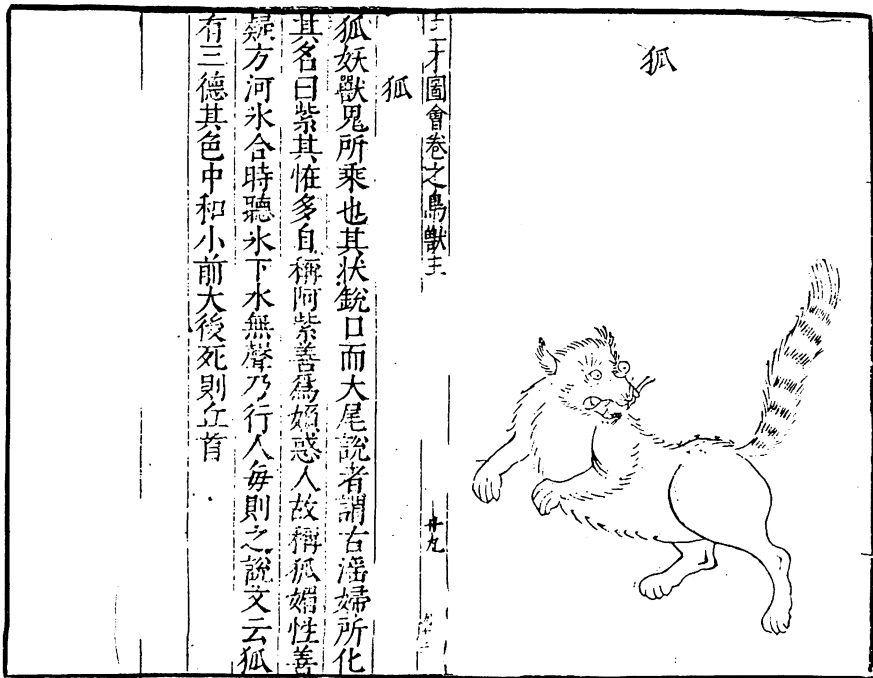 狐
三才圖會卷之鳥獸五
廿九
狐
狐妖獸鬼所乘也其状銳口而大尾說者謂古淫婦所化
其名曰紫其恠多自稱阿紫善爲媚惑人故稱狐媚性善
疑方河氷合時聽氷下水無聲乃行人每則之說文云狐
有三德其色中和小前大後死則丘首